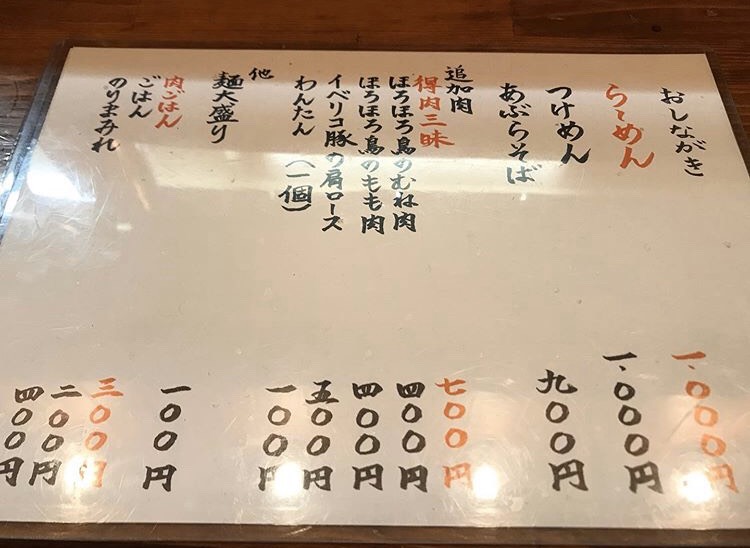 おしながき
らーめん 一、〇〇〇円
つけめん 一、〇〇〇円
あぶらそば 九〇〇円
追加肉
得肉三昧 七〇〇円
ほろほろ鳥のむね肉 四〇〇円
ほろほろ鳥のもも肉 四〇〇円
イベリコ豚の肩ロース 五〇〇円
わんたん（一個） 一〇〇円
他
麺大盛り 一〇〇円
肉ごはん 三〇〇円
ごはん 二〇〇円
のりまみれ 四〇〇円